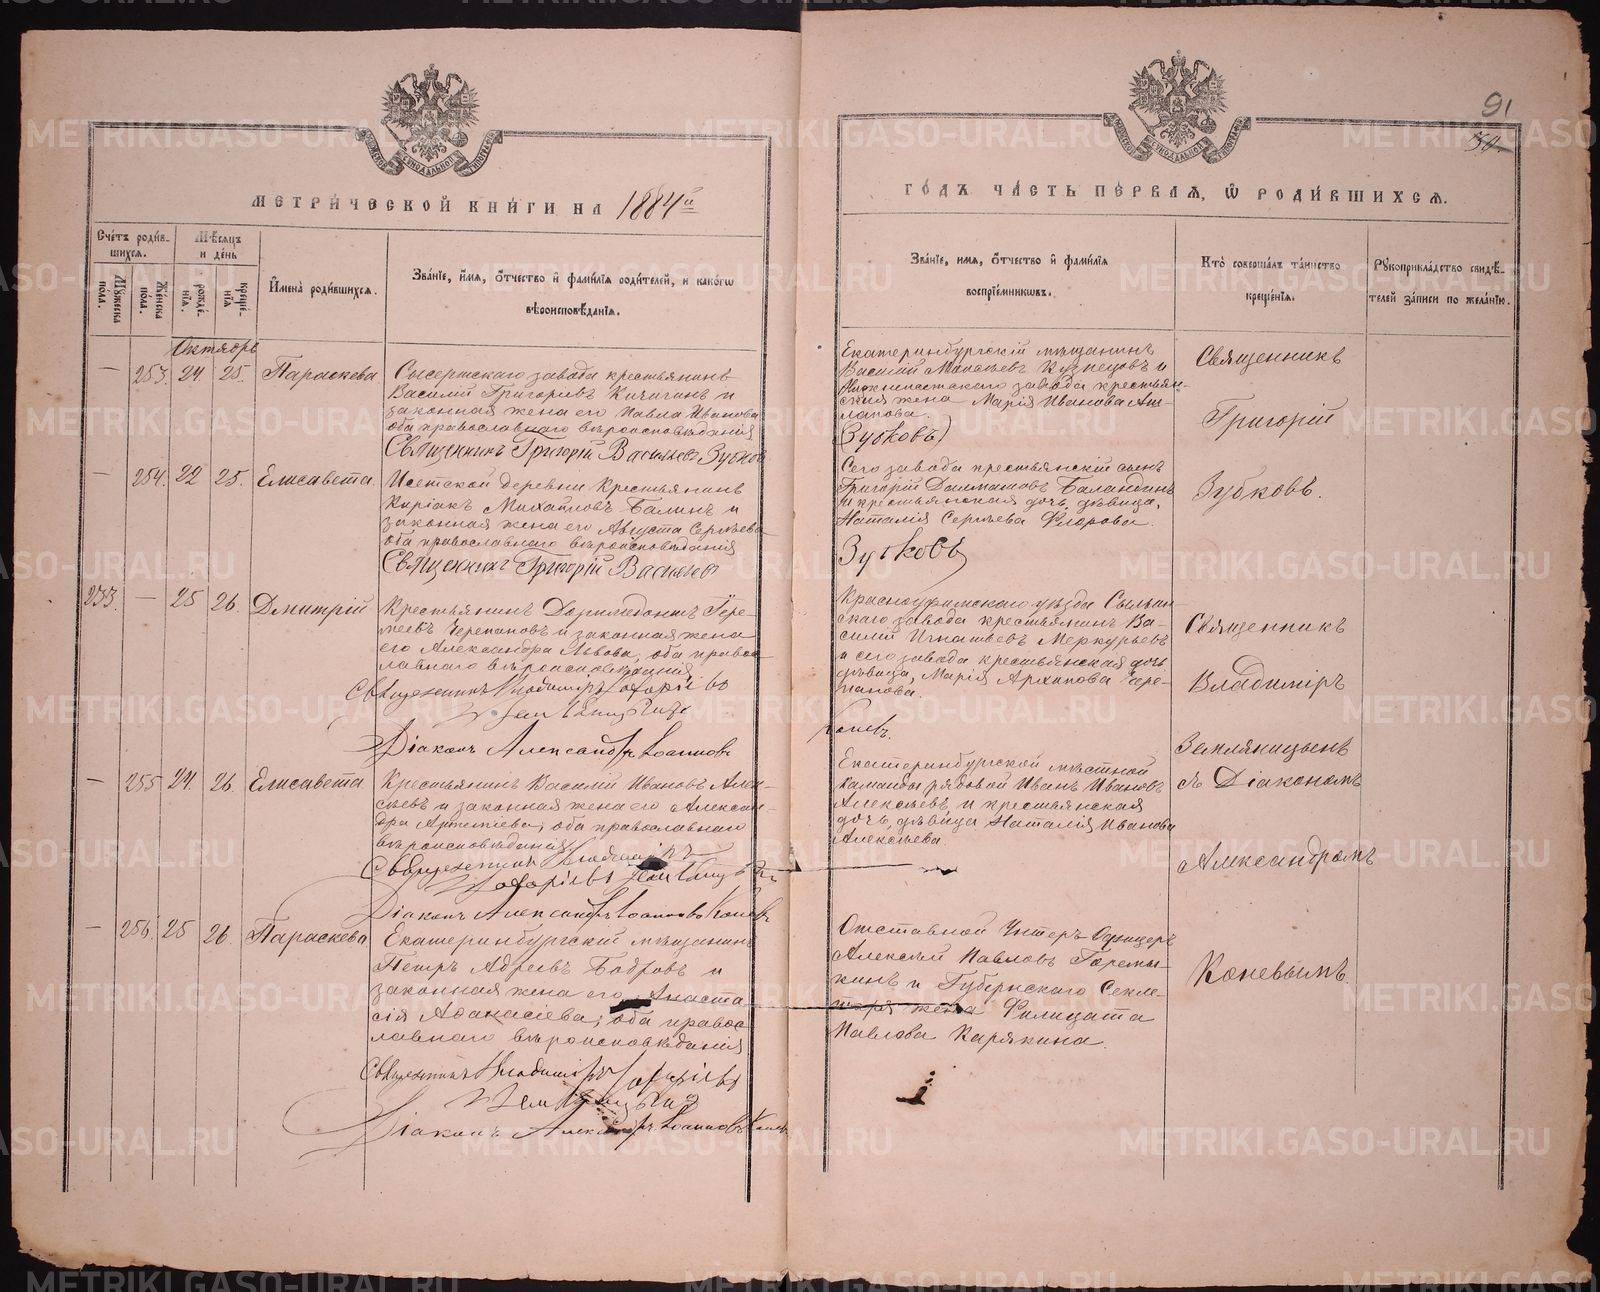 91
50.
МЕТРИЧЕСКОЙ КНИГИ НА 1884й
ГОДЪ ЧАСТЬ ПЕРВАЯ, Ѡ РОДИВШИХСЯ.
Счетъ родив-
шихся.
Мѣсяцъ
и день
Мужеска
пола.
Женска
пола.
рожде-
нїя.
креще-
нїя
Имена родившихся.
Званїе, имя, отчество и фамилїя родителей, и какогѡ
вѣроисповѣданїя.
Званїе, имя, отчество и фамилїя
воспрїемниковъ.
Кто совершалъ таинство
крещенїя.
Рукоприкладство свидѣ-
телей записи по желанїю.
Октябрь
— 253. 24. 25. Параскева
Сысертскаго завода крестьянинъ
Василій Григорьевъ Кичигинъ и
законная жена его Павла Иванова
оба православнаго вѣроисповѣданія
Священникъ Григорій Васильевъ Зубковъ
Екатеринбургскій мѣщанинъ
Василій Кузнецовъ и
Нижнеисетскаго завода крестьян-
ская жена Марія Иванова
Зубковъ
Священникъ
Григорій
Зубковъ.
— 254. 22 25. Елисавета
Исетской деревни Крестьянинъ
Киріакъ Михайловъ Балинъ и
законная жена его Августа Сергѣева
оба православнаго вѣроисповѣданія
Священникъ Григорій Васильевъ
Сего завода крестьянскій сынъ
Григорій Далматовъ Баландинъ
и крестьянская дочь, дѣвица,
Наталія Сергѣева Флорова.
Зубковъ
233. — 25 26. Дмитрій
Крестьянинъ Доримедонтъ Тере-
Черепановъ и законная жена
его Александра Львова, оба право-
славнаго вѣроисповѣданія
Священникъ Владиміръ
Земляницынъ
Діаконъ Александръ Іоанновъ
Красноуфимскаго уѣзда Сылвин-
скаго завода крестьянинъ Ва-
силій Игнатьевъ Меркурьевъ
и сего завода крестьянская дочь
дѣвица, Марія Архипова Чере-
панова.
Коневъ.
Священникъ
Владиміръ
Земляницынъ
съ Діакономъ
Александромъ
Коневымъ.
— 255 24. 26. Елисавета
Крестьянинъ Василій Ивановъ Алек-
сѣевъ и законная жена его Алексан-
дра Артемьева, оба православнаго
вѣроисповѣданія
Священникъ Владиміръ
Земляницынъ
Діаконъ Александръ Іоанновъ Коневъ
Екатеринбургской мѣстной
команды рядовой Иванъ Ивановъ
Алексѣевъ и крестьянская
дочь, дѣвица Наталія Иванова
Алексѣева.
— 256. 25 26. Параскева
Екатеринбургскій мѣщанинъ
Петръ Бобровъ и
законная жена его Анаста-
сія Аѳанасіева, оба право-
славнаго вѣроисповѣданія
Священникъ Владиміръ
Земляницынъ
Діаконъ Александръ Іоанновъ Коневъ
Отставной Унтеръ Офицеръ
Алексѣй Павловъ Горемы-
кинъ и Губернскаго Секре-
таря жена Филицата
Павлова Карякина.
METRIKI.GASO-URAL.RU